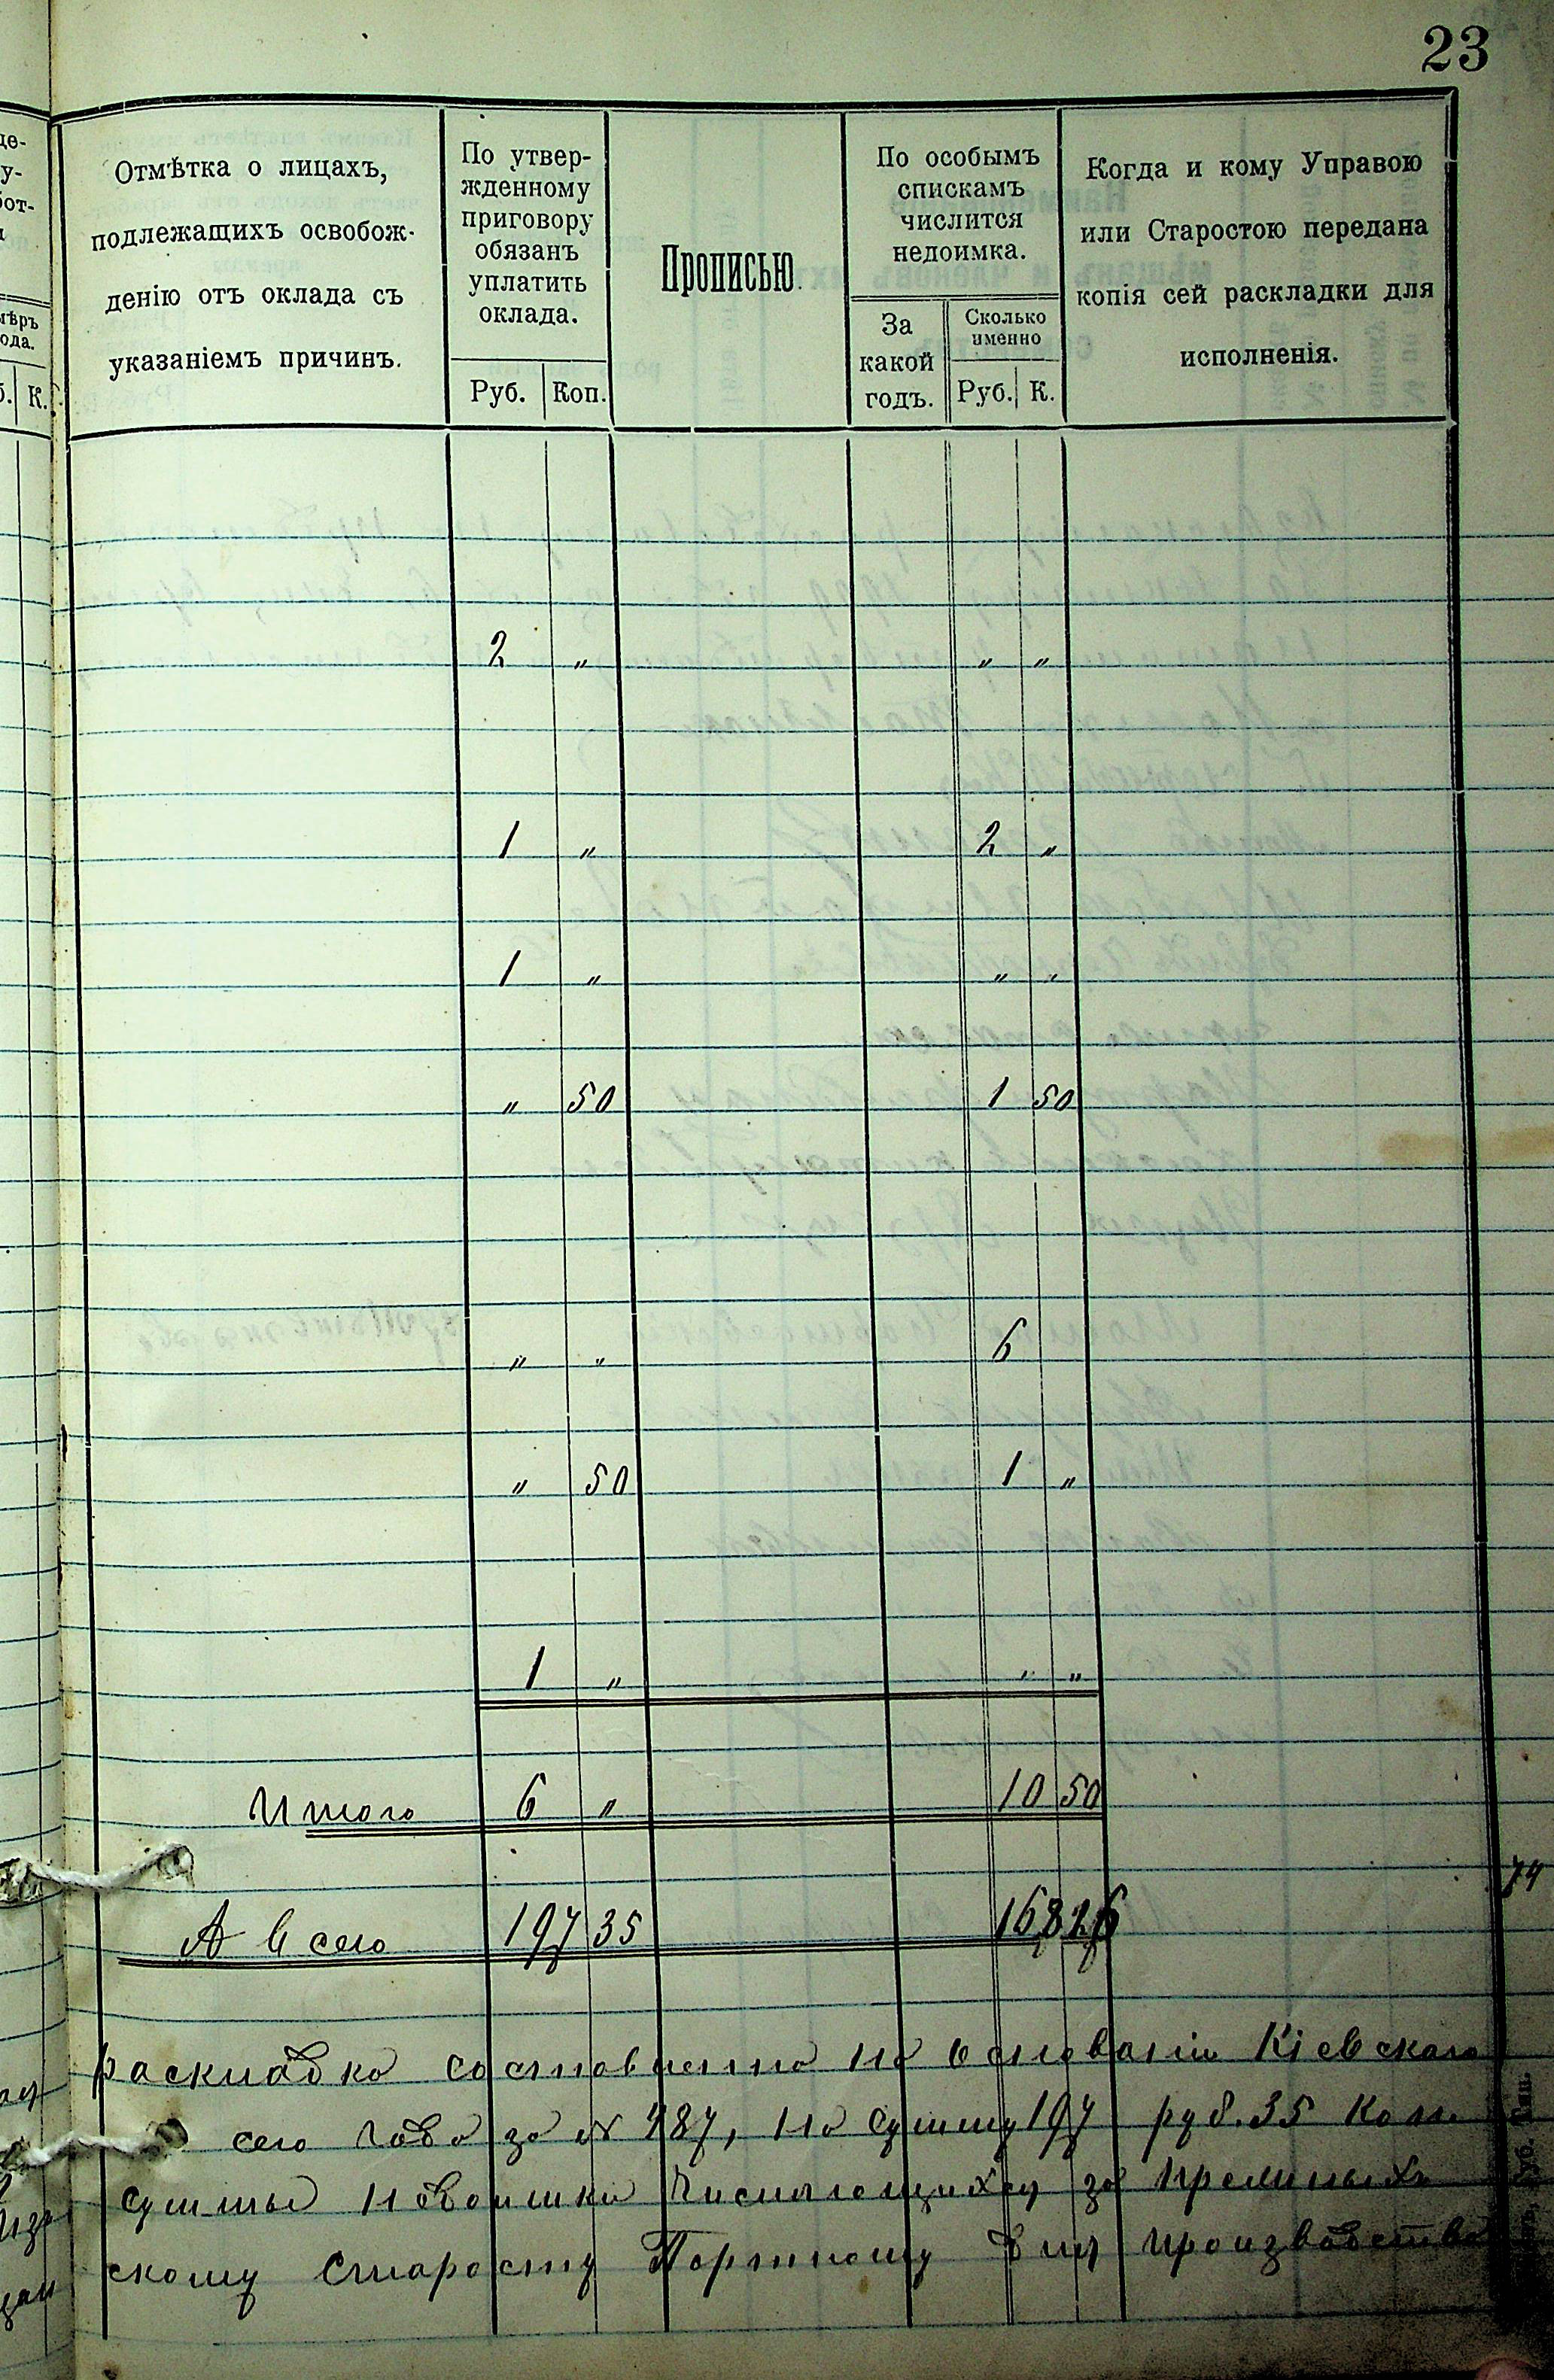 23
Отмѣтка о лицахъ,
подлежащихъ освобож-
денію отъ оклада съ
указаніемъ причинъ.
По утвер-
жденному
приговору
обязанъ
уплатить
оклада.
Руб. Коп.
Прописью.
По особымъ
спискамъ
числится
недоимка.
За
какой
годъ.
Сколько
именно
Руб. К.
Когда и кому Управою
или Старостою передана
копія сей раскладки для
исполненія.
2 " " "
1 " 2 "
1 " " "
" 50 1 50
" " 6
" 50 1 "
1 " " "
Итого 6 " 10 50
А всего 197 35 168
74
раскладка составлена на основаніи Кіевскаго
сего года за № 487, на сумму 197 руб. 35 коп.
суммы недоимки числящихся за
скому Старосту Портному для производства